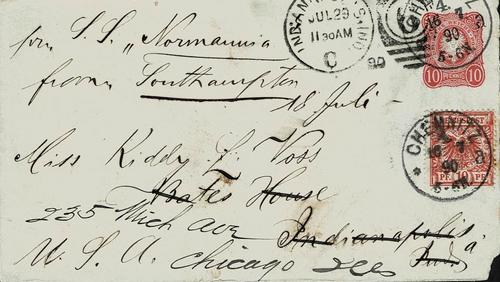 per S. S. „Normannia
from Southampton
18 Juli -
Miss Kiddy L. Voss
Bates House
235 Mich ave Indianapolis
U. S. A Chicago Ills Ind
INDIANAPOLIS, IND
JUL 29
11 30 AM
C
90
CHEMNITZ
16 7
90
5-6N
10 PFENNIG 10
CHEMNITZ
16 7
90
5-6N
PF. 10 PF.